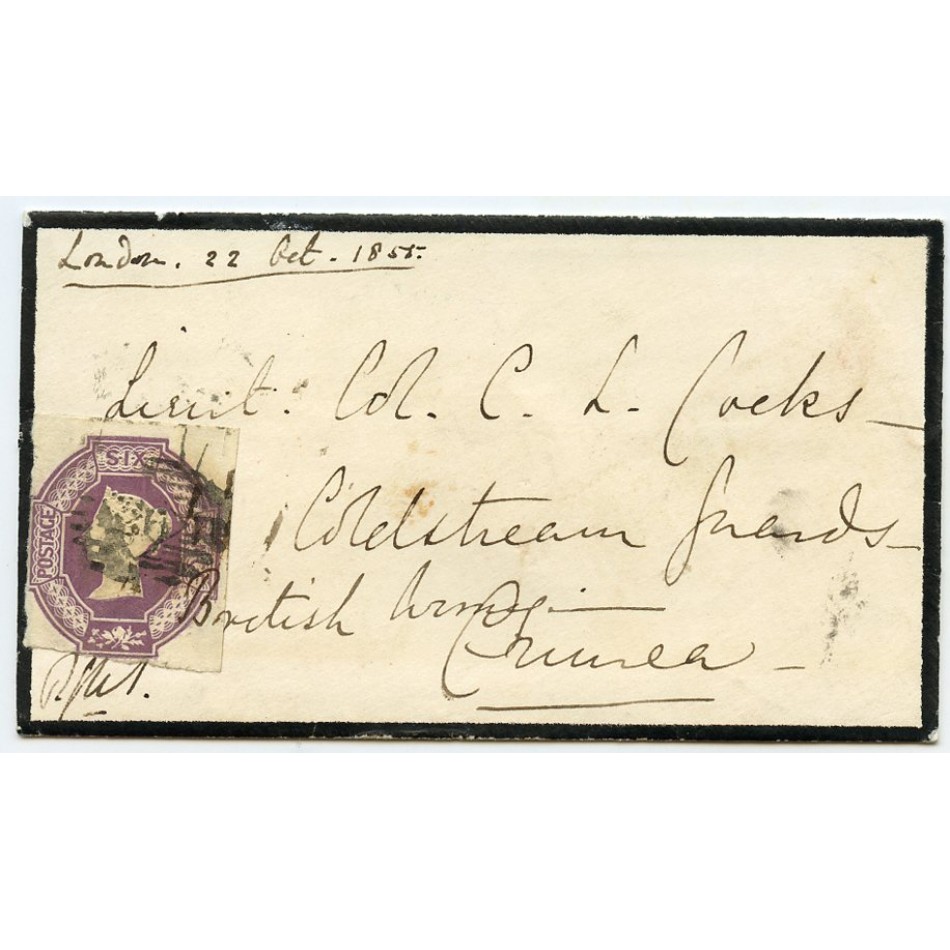 London. 22 Oct. 1855.
Lieut. Col. C. L. Cocks
Coldstream Guards
British Army
Crimea
SIX
POSTAGE